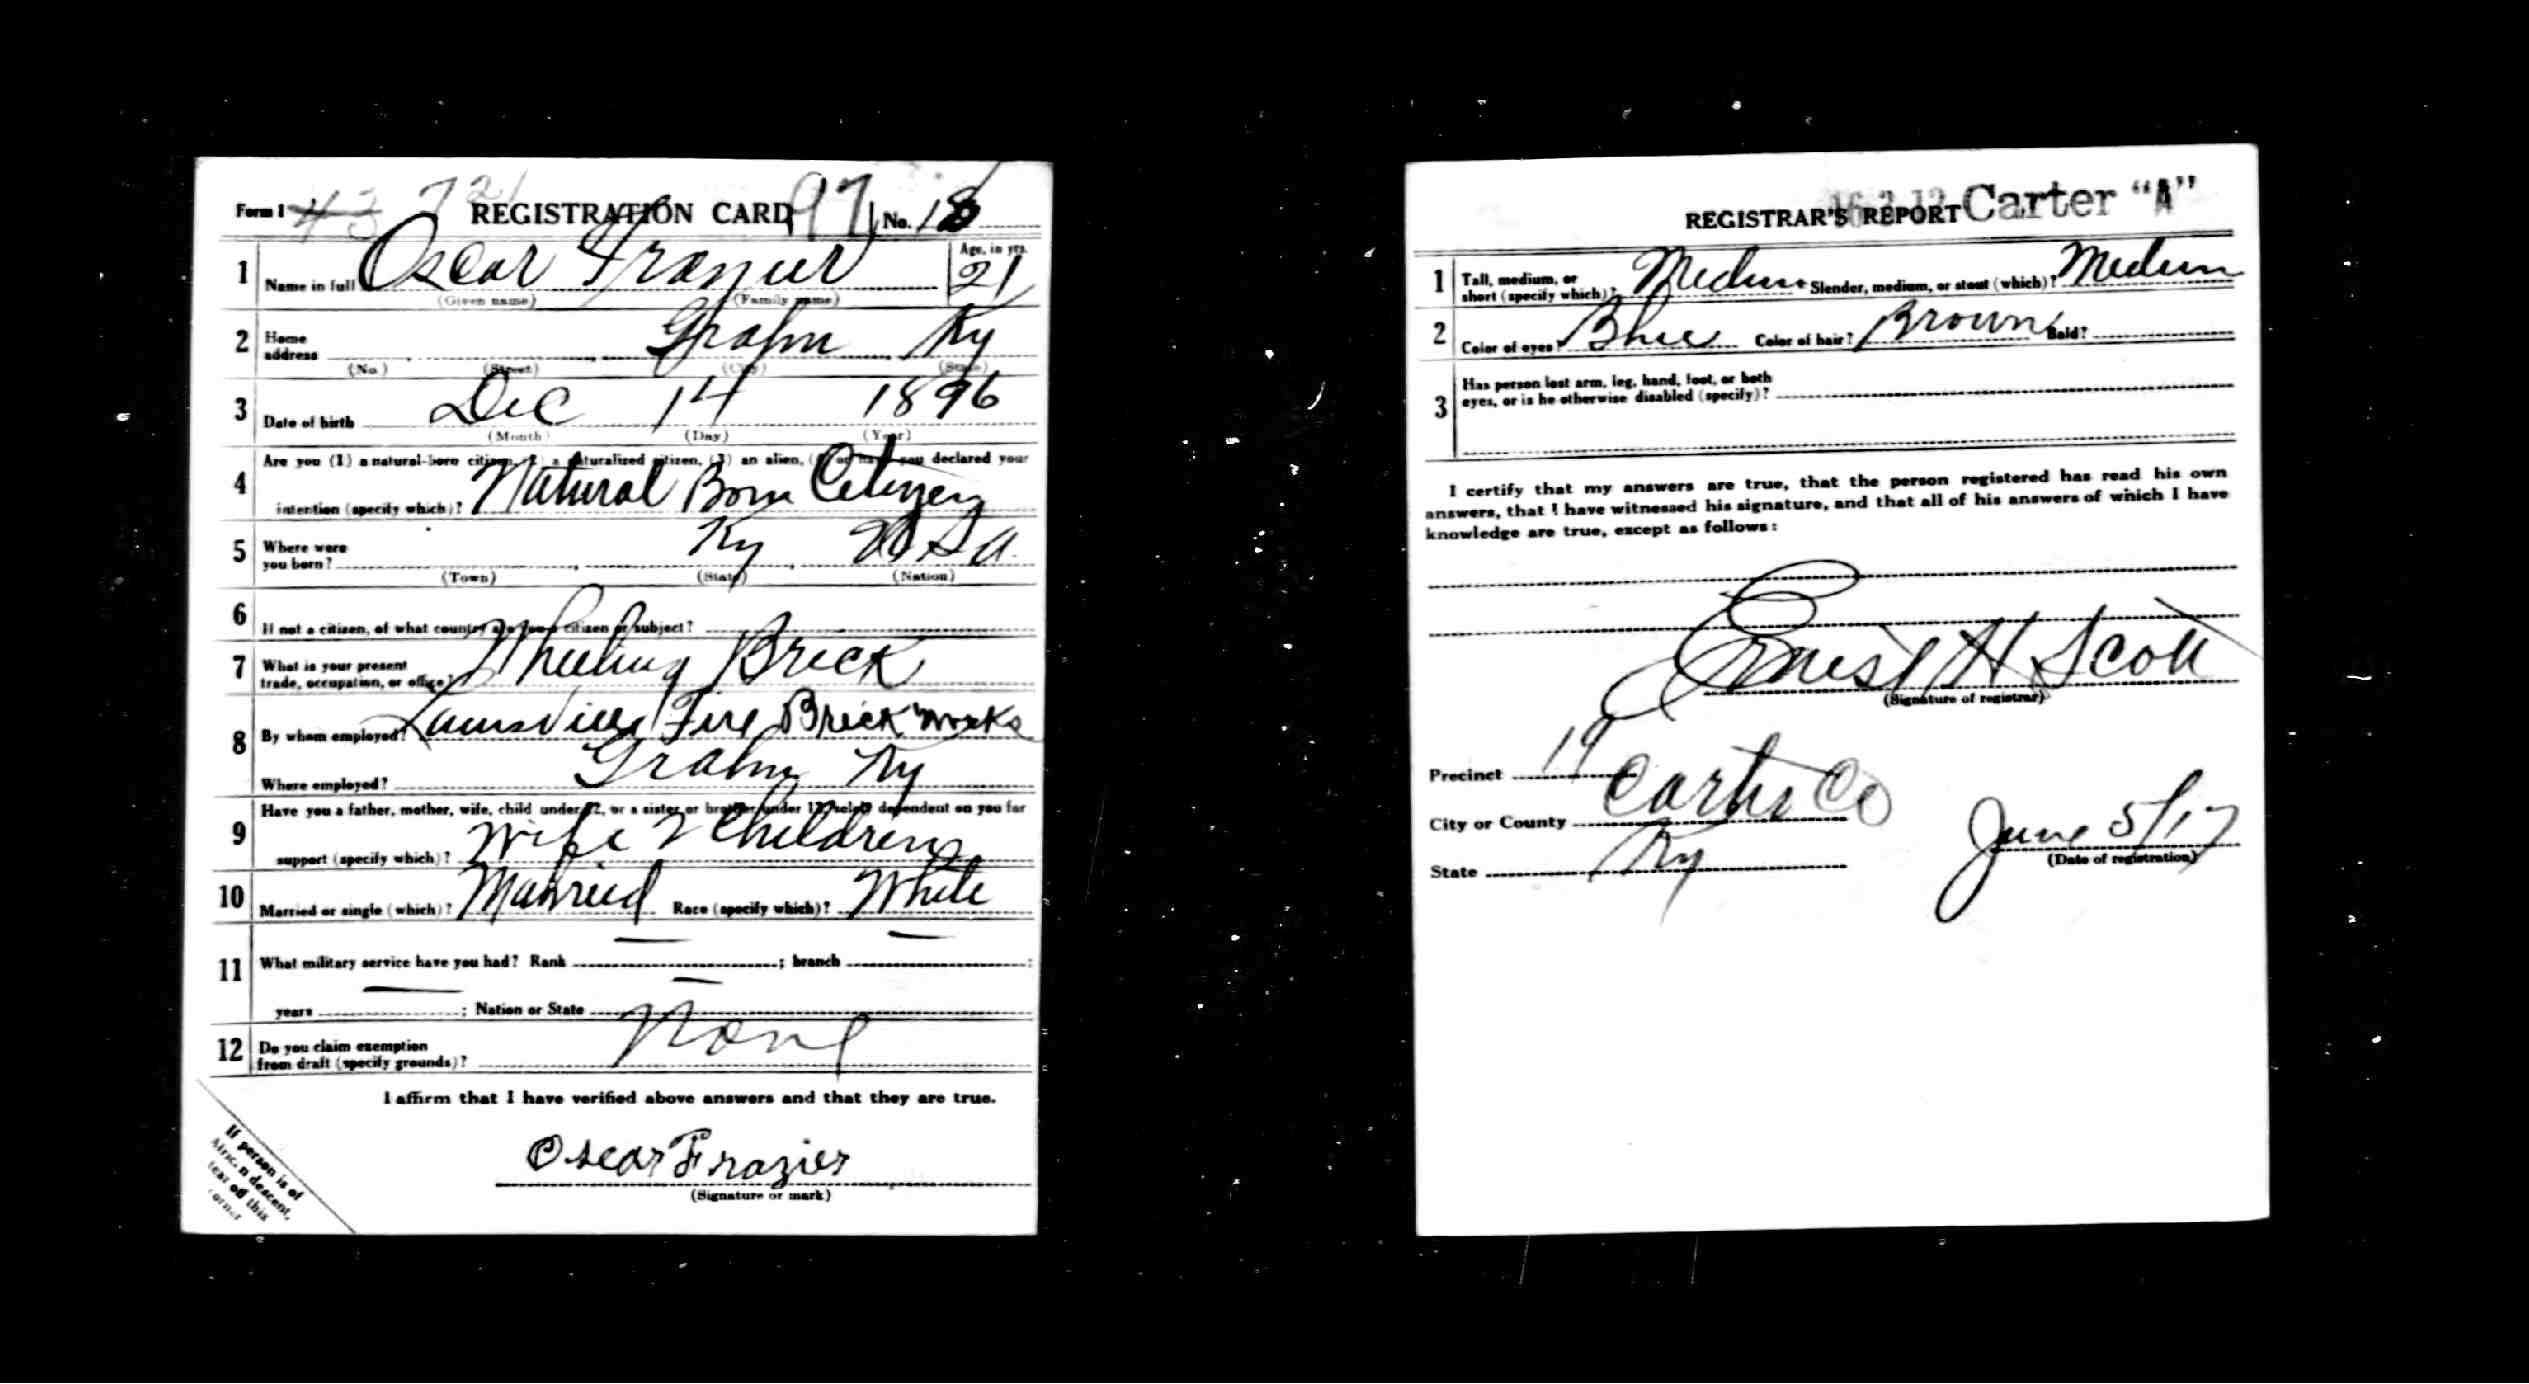 Form 1 43 721 REGISTRATION CARD 97 No. 18
1 Name in full Oscar Frazier Age, in yrs. 21
(Given name) (Family name)
2 Home address Grahn Ky
(No.) (Street) (City) (State)
3 Date of birth Dec 14 1896
(Month) (Day) (Year)
4 Are you (1) a natural-born citizen, (2) a naturalized citizen, (3) an alien, (4) or have you declared your
intention (specify which)? Natural Born Citizen
5 Where were you born? Ky USA
(Town) (State) (Nation)
6 If not a citizen, of what country are you a citizen or subject?
7 What is your present trade, occupation, or office? Wheeling Brick
8 By whom employed? Louisville Fire Brick Works
Where employed? Grahn Ky
9 Have you a father, mother, wife, child under 12, or a sister or brother under 12, solely dependent on you for
support (specify which)? Wife 2 Children
10 Married or single (which)? Married Race (specify which)? White
11 What military service have you had? Rank — ; branch — ;
years — ; Nation or State —
12 Do you claim exemption from draft (specify grounds)? None
I affirm that I have verified above answers and that they are true.
Oscar Frazier
(Signature or mark)
If person is of
African descent,
tear off this
corner
REGISTRAR'S REPORT Carter "A"
1 Tall, medium, or short (specify which)? Medium Slender, medium, or stout (which)? Medium
2 Color of eyes? Blue Color of hair? Brown Bald?
3 Has person lost arm, leg, hand, foot, or both
eyes, or is he otherwise disabled (specify)?
I certify that my answers are true, that the person registered has read his own
answers, that I have witnessed his signature, and that all of his answers of which I have
knowledge are true, except as follows:
Ernest H Scott
(Signature of registrar)
Precinct 19
City or County Carter Co
State Ky
June 5/17
(Date of registration)